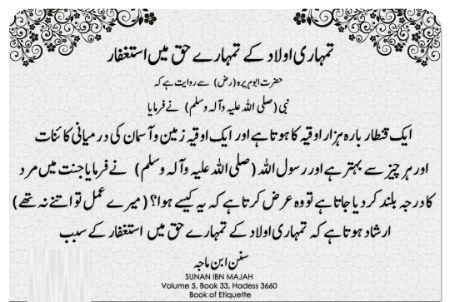 تمہاری اولاد کے تمہارے حق میں استغفار
حضرت ابوہریرہ (رض) سے روایت ہے کہ
نبی (صلی اللہ علیہ وآلہ وسلم) نے فرمایا
ایک قنطار بارہ ہزار اوقیہ کا ہوتا ہے اور ایک اوقیہ زمین وآسمان کی درمیانی کائنات
اور ہر چیز سے بہتر ہے اور رسول اللہ (صلی اللہ علیہ وآلہ وسلم) نے فرمایا جنت میں مرد
کا درجہ بلند کر دیا جاتا ہے تو وہ عرض کرتا ہے کہ یہ کیسے ہوا؟ (میرے عمل تو اتنے نہ تھے)
ارشاد ہوتا ہے کہ تمہاری اولاد کے تمہارے حق میں استغفار کے سبب
سنن ابن ماجہ
SUNAN IBN MAJAH
Volume 5, Book 33, Hadess 3660
Book of Etiquette